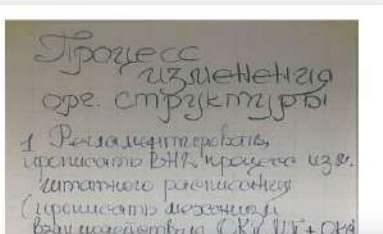 Процесс
изменения
орг. структуры
1 Регламентировать,
прописать ВНД процесса изм.
штатного расписания
(прописать механизм
взаимодействия